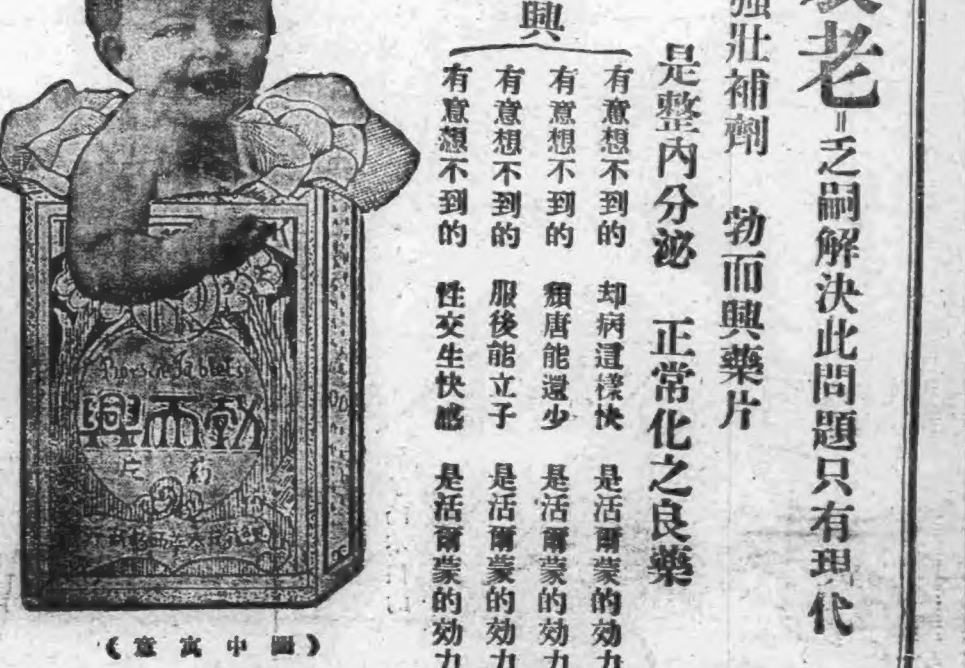 老=乏嗣解決此問題只有現代
強壯補劑 勃而興藥片
是整內分泌 正常化之良藥
興
有意想不到的 却病這樣快 是活爾蒙的効力
有意想不到的 頹唐能還少 是活爾蒙的効力
有意想不到的 服後能立子 是活爾蒙的効力
有意想不到的 性交生快感 是活爾蒙的効力
Tablets
興而勃
片药
《意寓中圖》